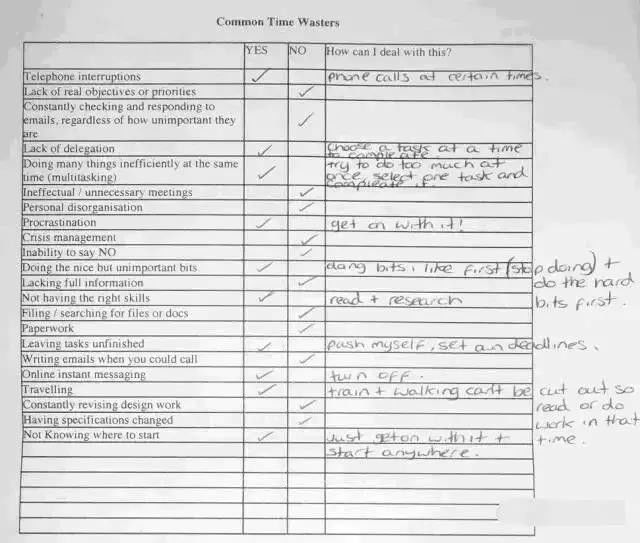 Common Time Wasters
YES NO How can I deal with this?
Telephone interruptions ✓ phone calls at certain times.
Lack of real objectives or priorities ✓
Constantly checking and responding to
emails, regardless of how unimportant they ✓
are
Lack of delegation ✓ Choose a task at a time
to compleate.
Doing many things inefficiently at the same try to do too much at
time (multitasking) ✓ once, select one task and
compleate it.
Ineffectual / unnecessary meetings ✓
Personal disorganisation ✓
Procrastination ✓ get on with it!
Crisis management ✓
Inability to say NO ✓
Doing the nice but unimportant bits ✓ doing bits i like first (stop doing) +
do the hard
bits first.
Lacking full information ✓
Not having the right skills ✓ read + research
Filing / searching for files or docs ✓
Paperwork ✓
Leaving tasks unfinished ✓ push myself, set deadlines.
Writing emails when you could call ✓
Online instant messaging ✓ turn off.
Travelling ✓ train + walking can't be cut out so
read or do
work in that
time.
Constantly revising design work ✓
Having specifications changed ✓
Not Knowing where to start ✓ Just get on with it +
start anywhere.